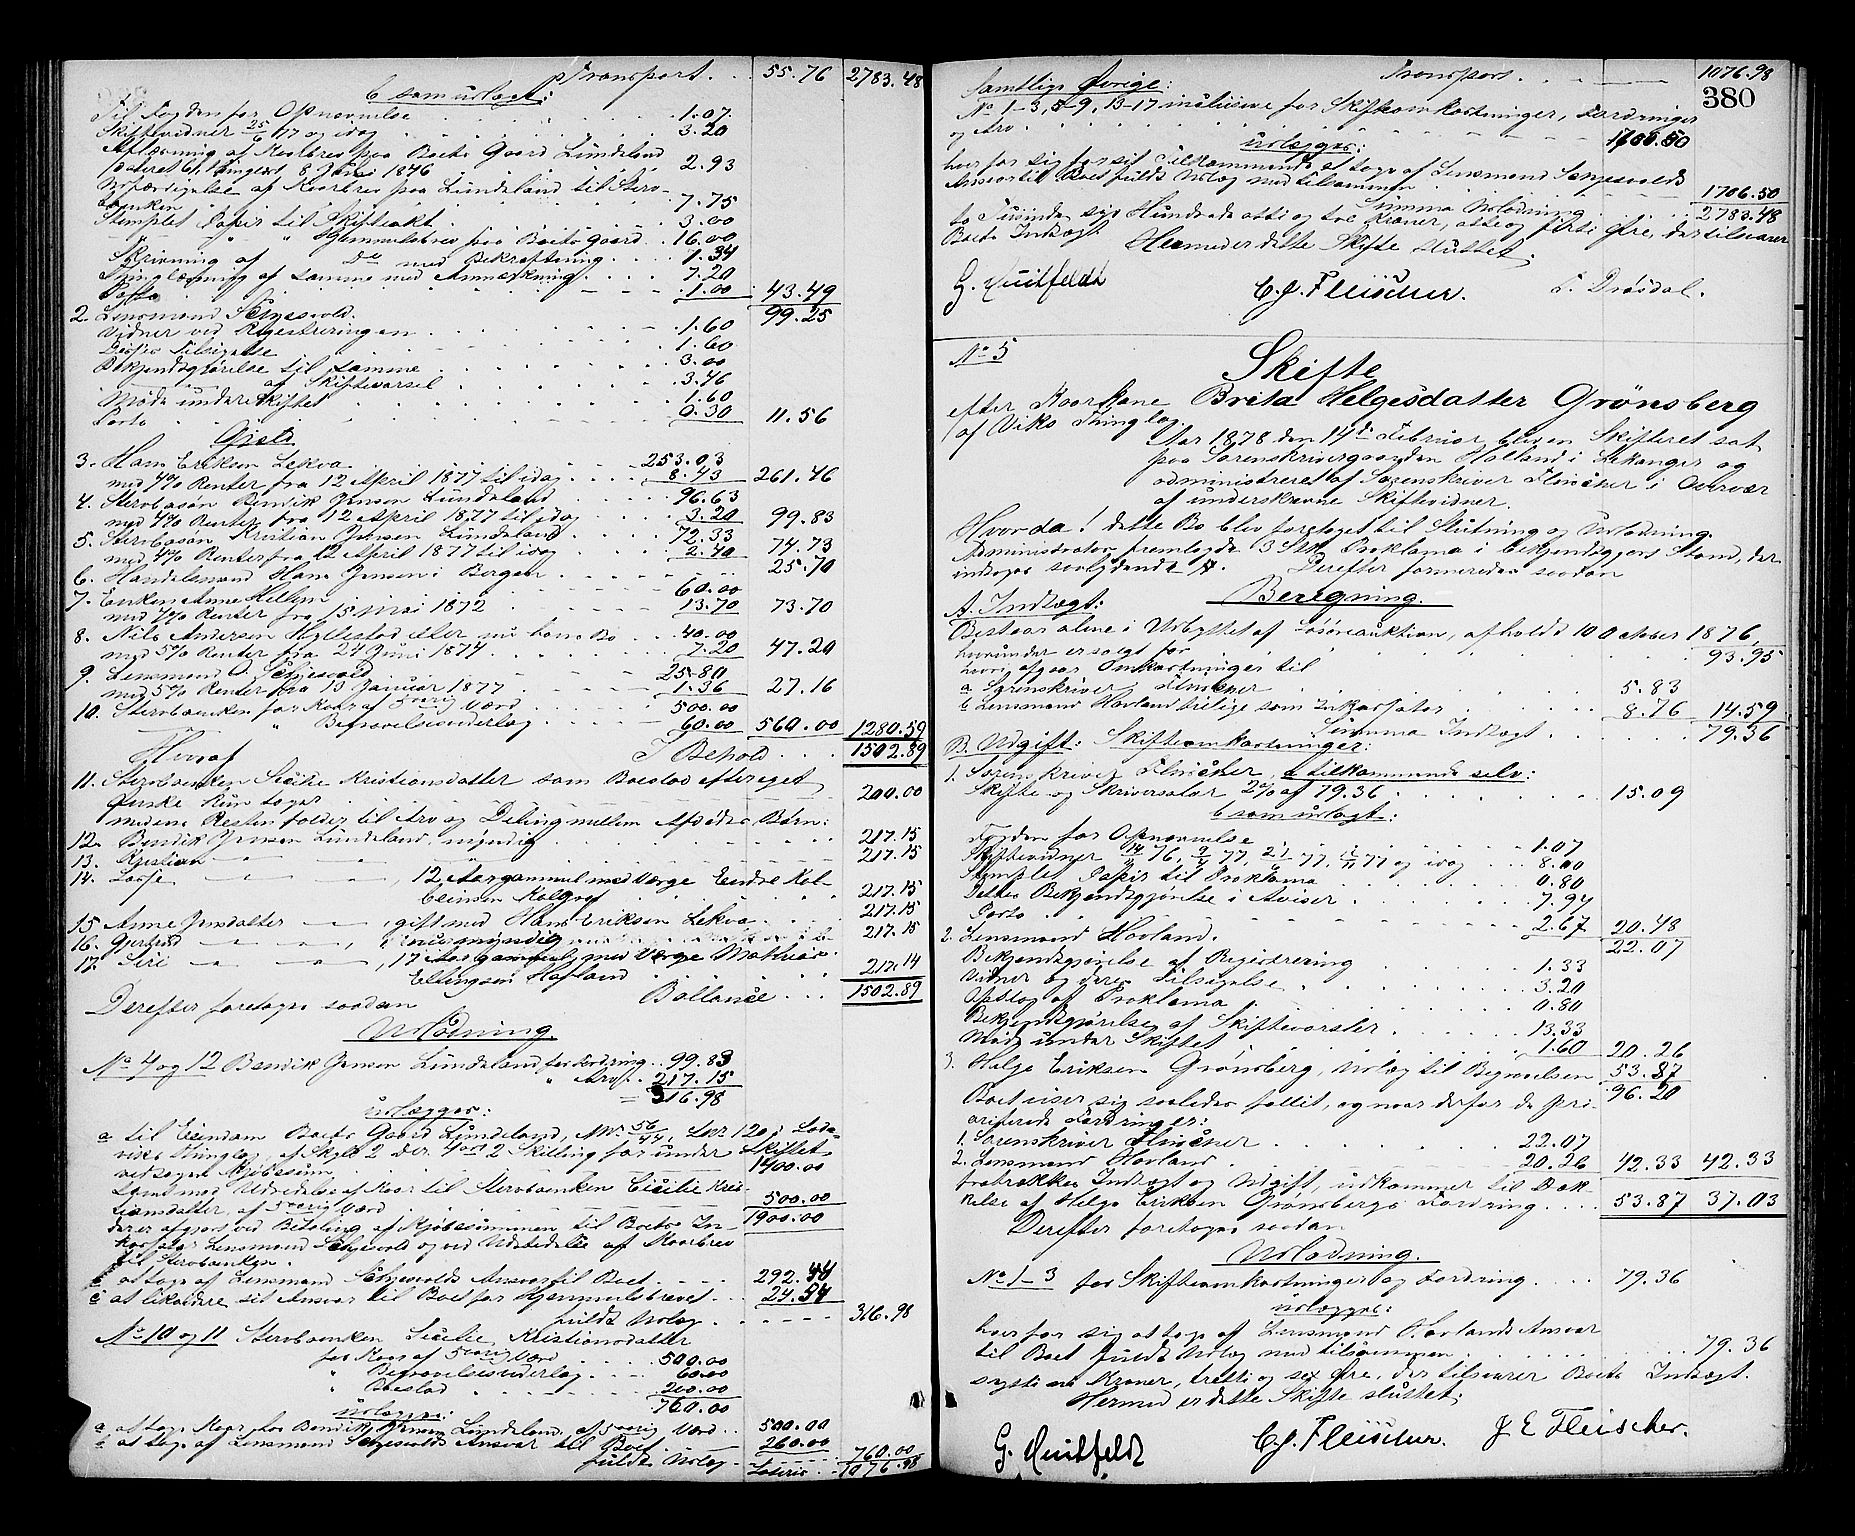 Transport. . . 55.76 2783.48
b som udlagt:
Til Fogden for Opnævnelse . . . 1.07.
Skiftevidner 25/6 77 og idag . . . 3.20
Aflæsning af Kaarbrev paa Boets Gaard Lundeland
8 Juni 1846 . . . 2.93
Udfærdigelse af Kaarbrev paa Lundeland til Stervboenken . . . 7.75
Stemplet Papir til Skifteakt . . . 3.00
" " " Hjemmelsbrev paa Boets gaard . . 16.00
Skrivning af Do med Bekræftning . . . 1.34
Thinglæsning af samme med Anmærkning . . . 7.20
Porto . . . 1.00 43.49
99.25
2. Lensmand
Vidner ved Registreringen . . . 1.60
Deres Tilsigelse . . . 1.60
Bekjendtgjørelse til samme . . . 3.00
af Skiftevarsel . . . 3.46
Møde under Skiftet . . . 1.60
Porto . . . 0.30 11.56
Gjeld
3. Hans Eriksen Lekva . . . 253.03
med 4% Renter fra 12 April 1877 til idag . . . 8.43 261.46
4. Stervbosøn Bendik Jensen Lundeland . . . 96.63
med 4% Renter fra 12 April 1877 til idag . . . 3.20 99.83
5. Stervbosøn Kristian Jensen Lundeland . . . 72.33
med 4% Renter fra 12 April 1877 til idag . . . 2.40 74.73
6. Handelsmand Hans Jensen i Bergen . . . 25.70
7. Enken Anne . . . 60.00
med 4% Renter fra 15 Mai 1872 . . . 13.70 73.70
8. Nils Andersen Hyllestad eller nu hans Bo . . . 40.00
med 5% Renter fra 24 Juni 1874 . . . 7.20 47.20
9. Lensmand . . . 25.80
med 5% Renter fra 13 Januar 1877 . . . 1.36 27.16
10. Stervboenken for Kaar af 5 aarig Værd . . . 500.00
" Begravelsesudlæg . . . 60.00 560.00 1280.59
I Behold . . . 1502.89
Hvoraf
11. Stervboenken Cicilie Kristiansdatter som Boeslod efter eget
Ønske kun tager . . . 200.00
medens Resten falder til Arv og Deling mellem Afdødes Børn:
12. Bendik Jensen Lundeland, myndig . . . 217.15
13. Kristian — " — . . . 217.15
14. Lasse — " — " , 12 Aar gammel med Værge Endre Kol-
beinsen Kolgrof . . . 217.15
15 Anne Jensdatter — " — , gift med Hans Eriksen Lekva . . . 217.15
16. Gjertrud — " — " , myndig . . . 217.15
17. Siri — " — " , 17 Aar gammel, med Værge Mathias
Ellingsen Hofland . . . 217.14
Ballance . . . 1502.89
Derefter foretoges saadan
Udlodning.
No 4 og 12 Bendik Jensen Lundeland for Fordring . . 99.83
" Arv . . 217.15
= 316.98
udlægges:
a til Eiendom Boets Gaard Lundeland, Mnr 56/44, Lnr 120 i Lade-
viks Thinglag, af Skyld 2 Dlr. 4 ort 2 Skilling for under Skiftet
vedtagen Kjøbesum . . . 1400.00
samt mod Udredelse af Kaar til Stervboenken Cicilie Kris-
tiansdatter, af 5 aarig Værd . . . 500.00
1900.00
der er afgjort ved Betaling af Kjøbesummen til Boets In-
kassator Lensmand og ved Udstedelse af Kaarbrev
til Stervboenken.
b at tage af Lensmand Ansvar til Boet . . . 292.44
c at likvidere sit Ansvar til Boet for Hjemmelsbrevet . . . 24.54
fuldt Udlæg . . . 316.98
No 10 og 11 Stervboenken Cicilie Kristiansdatter
for Kaar af 5 aarig Værd . . . 500.00
" Begravelsesudlæg . . . 60.00
" Boeslod . . . 200.00
760.00
udlægges:
a at tage Kaar hos Bendik Jensen Lundeland, af 5 aarig Værd . . 500.00
b at tage af Lensmand Ansvar til Boet . . 260.00
fuldt Udlæg 760.00
Lateris . . 1076.98
Transport . . . 1076.98
380
Samtlige øvrige:
No 1-3, 5-9, 13-17 inclusive for Skifteomkostninger, Fordringer
og Arv . . . 1706.50
udlægges:
hver for sig for sit Tilkommende at tage af Lensmand
Ansvar til Boet fuldt Udlæg med tilsammen . . . 1706.50
Summa Udlodning . . . 2783.48
to Tusinde syv Hundrede otti og tre Kroner, otte og firti Øre, der tilsvarer
Boets Indtægt. Hermed er dette Skifte sluttet.
G. Huitfeldt C. J. Fleischer. L. Drøsdal.
No 5
Skifte
efter Kaarkone Brita Helgesdatter Grønsberg
af Viks Thinglag.
Aar 1878 den 14de Februar blev en Skifteret sat
paa Sorenskrivergaarden Hatland i Lekanger og
administreret af Sorenskriver Fleischer i Overvær
af underskrevne Skiftevidner.
Hvorda! dette Bo blev foretaget til Slutning og Udlodning.
Administrator fremlagde 3 Stk. Proklama i bekjendtgjort Stand, der
indtages saalydende A. Derefter formeredes saadan
Beregning.
A. Indtægt:
Bestaar alene i Udbyttet af Løsøreauktion, afholdt 10 October 1876,
hvorunder er solgt for . . . 93.95
hvori afgaar Omkostninger til
a Sorenskriver Fleischer . . . 5.83
b Lensmand Hovland tillige som Inkassator . . . 8.76 14.59
Summa Indtægt . . . 79.36
B. Udgift: Skifteomkostninger:
1. Sorenskriver Fleischer, a tilkommende selv:
Skifte og Skriversalær 2% af 79.36 . . . 15.09
b som udlagt:
Fogden for Opnævnelse . . . 1.07
Skiftevidner 14/11 76, 9/4 77, 21/6 77, 12/11 77 og idag . . . 8.00
Stemplet Papir til Proklama . . . 0.80
Dettes Bekjendtgjørelse i Aviser . . . 7.94
Porto . . . 2.67 20.48
22.07
2. Lensmand Hovland.
Bekjendtgjørelse af Registrering . . . 1.33
Vidner og deres Tilsigelse . . . 3.20
Opslag af Proklama . . . 0.80
Bekjendtgjørelse af Skiftevarsler . . . 13.33
Møde under Skiftet . . . 1.60 20.26
3. Helge Eriksen Grønsberg, Udlæg til Begravelsen 53.87
96.20
Boet viser sig saaledes fallit, og naar derfor de pri-
oriterede Fordringer:
1. Sorenskriver Fleischer . . . 22.07
2. Lensmand Hovland . . . 20.26 42.33 42.33
fratrækkes Indtægt og Udgift, udkommer til Dæk-
kelse af Helge Eriksen Grønsbergs Fordring . . . 53.87 37.03
Derefter foretoges saadan
Udlodning.
No 1-3 for Skifteomkostninger og Fordring . . . 79.36
udlægges:
hver for sig at tage af Lensmand Hovlands Ansvar
til Boet fuldt Udlæg med tilsammen . . . 79.36
sytti ni Kroner, tretti og sex Øre, der tilsvarer Boets Indtægt.
Hermed er dette Skifte sluttet.
G. Huitfeldt C. J. Fleischer. J E Fleischer.